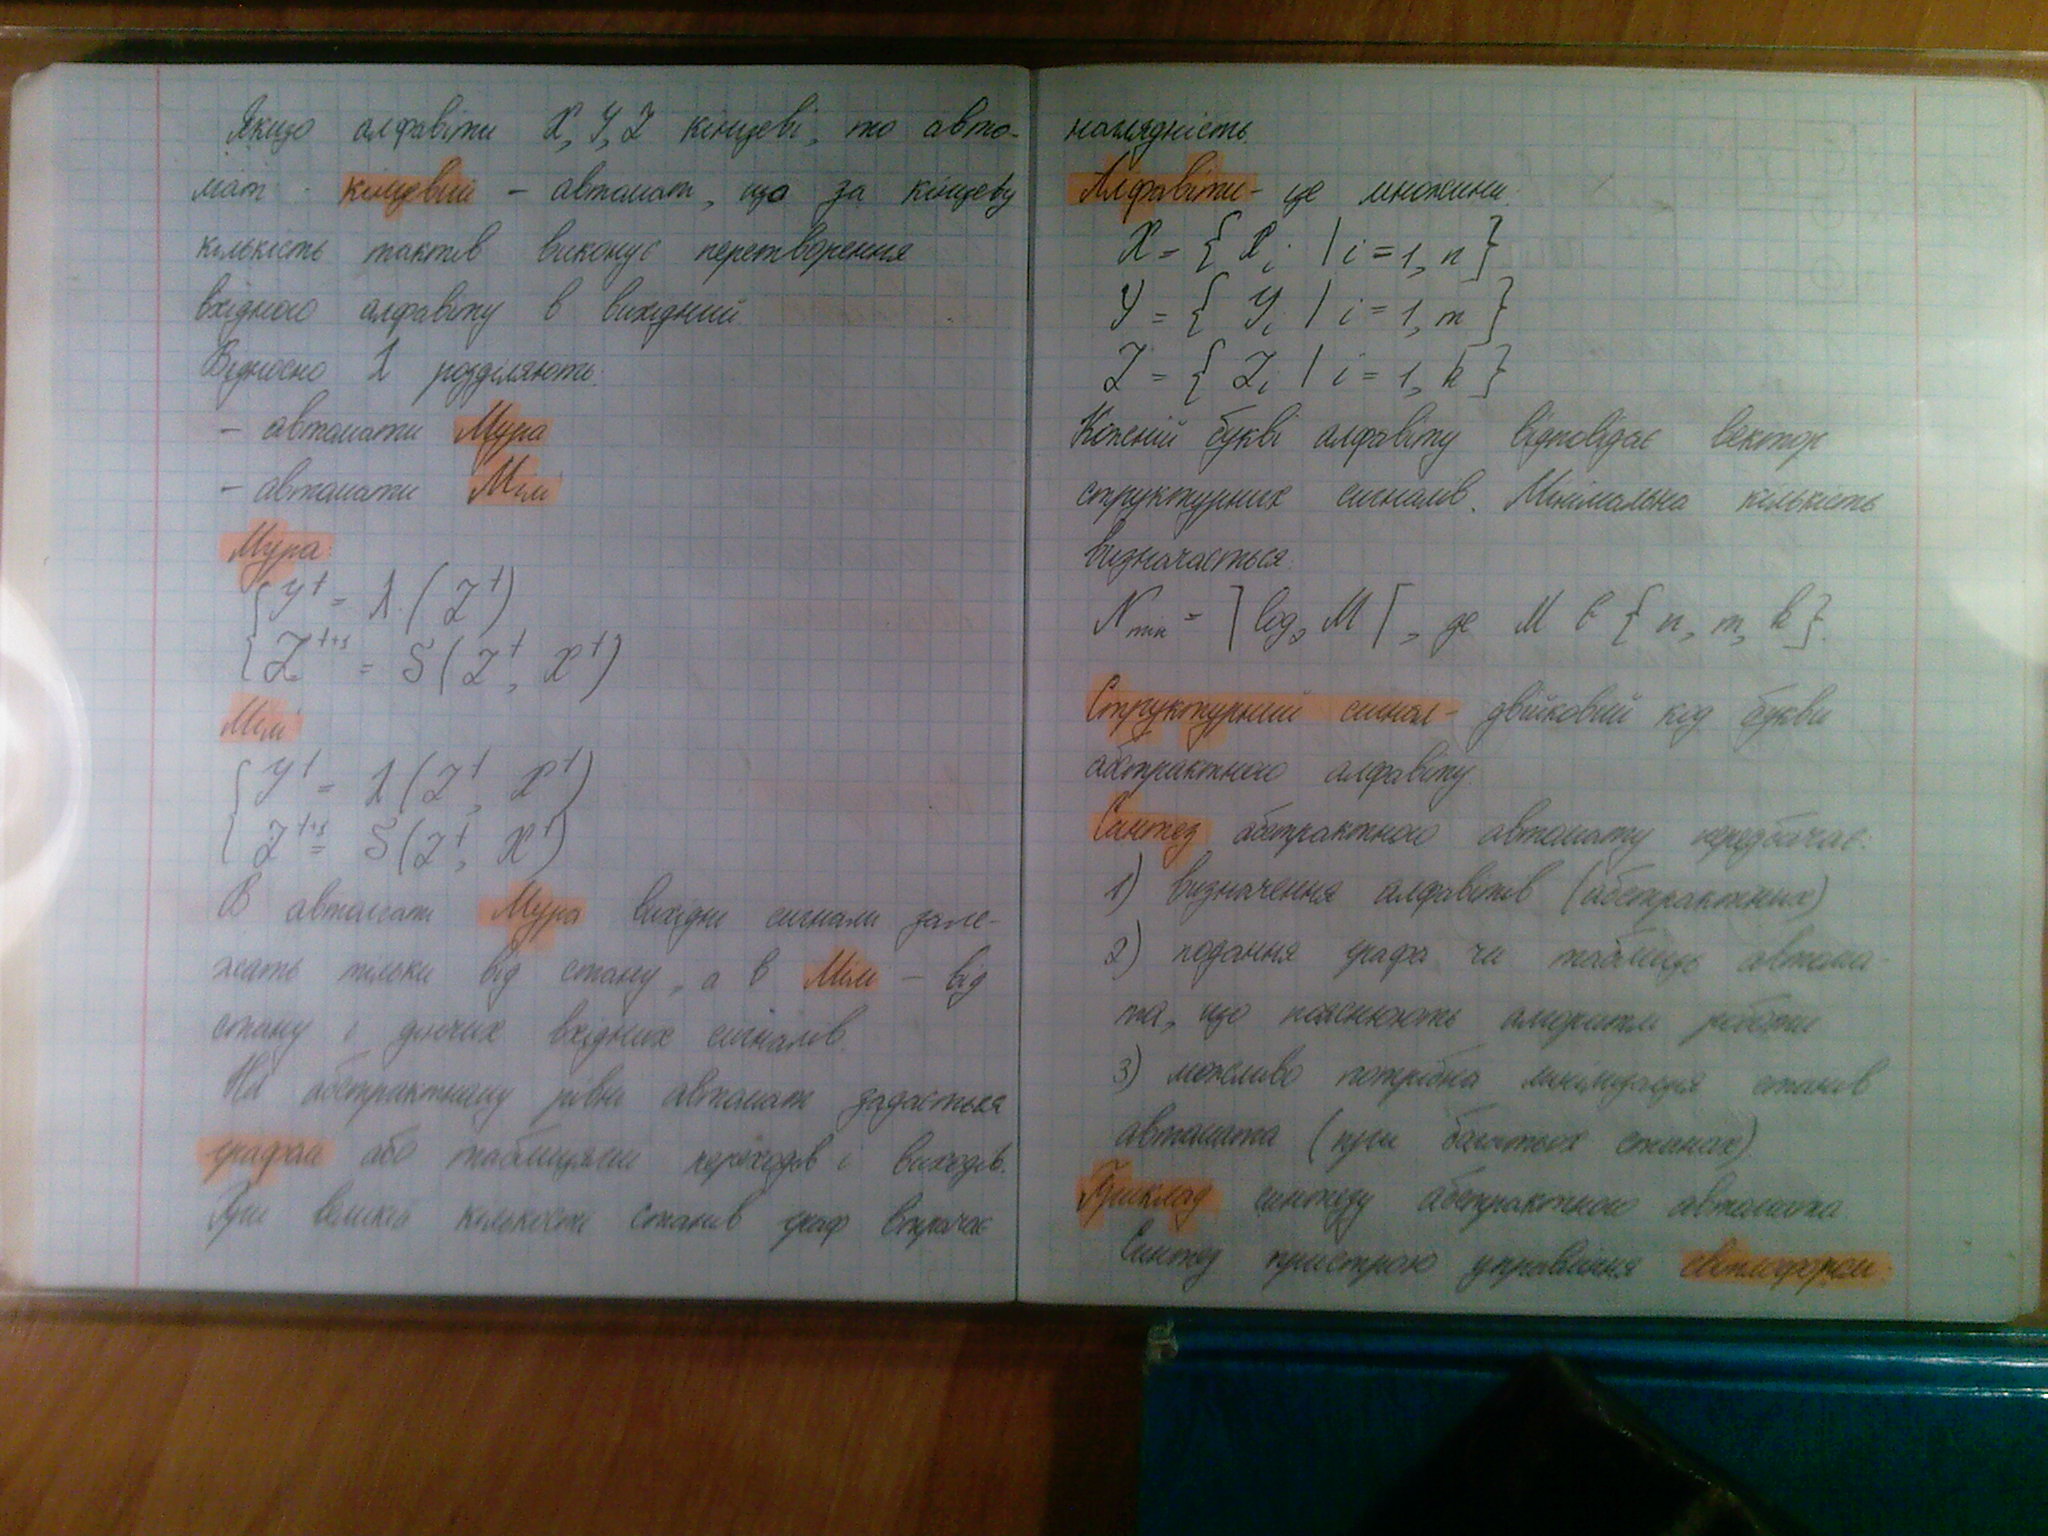 Якщо алфавіти X, Y, Z кінцеві, то авто-
мат - кінцевий - автомат, що за кінцеву
кількість тактів виконує перетворення
вхідного алфавіту в вихідний
Відносно λ розділяють:
- автомати Мура
- автомати Мілі
Мура:
{ Y^t = λ (Z^t)
{ Z^{t+1} = δ (Z^t, X^t)
Мілі
{ Y^t = λ (Z^t, X^t)
{ Z^{t+1} = δ (Z^t, X^t)
В автоматі Мура вихідні сигнали зале-
жать тільки від стану, а в Мілі - від
стану і діючих вхідних сигналів.
На абстрактному рівні автомат задається
графом або таблицями переходів і виходів.
При великій кількості станів граф втрачає
наглядність.
Алфавіти - це множини:
X = { X_i | i = 1, n }
Y = { Y_i | i = 1, m }
Z = { Z_i | i = 1, k }
Кожній букві алфавіту відповідає вектор
структурних сигналів. Мінімальна кількість
визначається:
N_min = ]log_2 M[, де M є { n, m, k }.
Структурний сигнал - двійковий код букви
абстрактного алфавіту
Синтез абстрактного автомату передбачає:
1) визначення алфавітів (абстрактних)
2) подання графа чи таблиць автома-
та, що пояснюють алгоритм роботи
3) можливо потрібна мінімізація станів
автомата (при багатьох станах)
Приклад синтезу абстрактного автомата
Синтез пристрою управління світлофором.